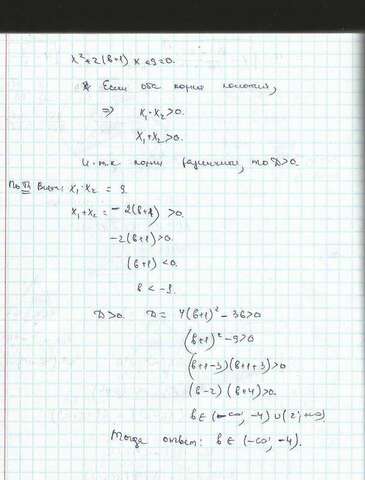 x² + 2(b+1) x + 9 = 0.
Если оба корня положит,
⇒ x₁·x₂ > 0.
x₁+x₂ > 0.
и т.к корни различны, то D>0.
По Т Виет: x₁·x₂ = 9
x₁+x₂ = -2(b+1) > 0.
-2(b+1) > 0.
(b+1) < 0.
b < -1.
D > 0. D = 4(b+1)² - 36 > 0
(b+1)² - 9 > 0
(b+1-3)(b+1+3) > 0
(b-2)(b+4) > 0.
b ∈ (-∞; -4) ∪ (2; +∞)
Тогда ответ: b ∈ (-∞; -4).